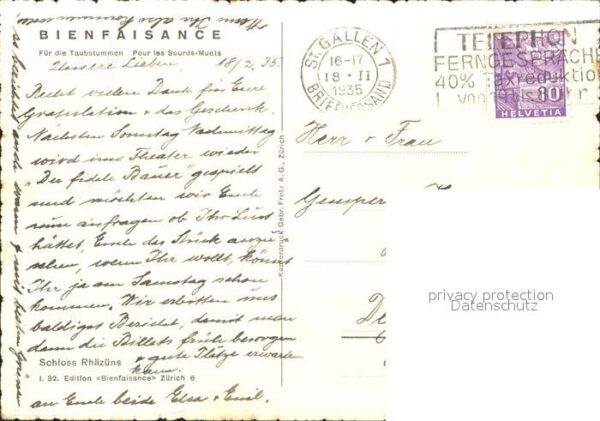 BIENFAISANCE
Für die Taubstummen Pour les Sourds-Muets
Unsere Lieben, 18/2. 35.
Recht vielen Dank für Eure
Gratulation & das Geschenk.
Nächsten Sonntag Nachmittag
wird im Theater wieder
"Der fidele Bauer" gespielt
und möchten wir Euch
nun anfragen ob Ihr Lust
hättet, Euch das Stück anzu
sehen, wenn Ihr wollt, könnt
Ihr ja am Samstag schon
kommen. Wir erbitten uns
baldiges Bericht, damit man
dann die Billets früh besorgen
& gute Plätze erwarten
kann.
Schloss Rhäzüns
I. 32. Edition «Bienfaisance» Zürich 6
an Euch beide Elsa & Emil.
Wann Ihr also kommen
so berichtet auch wann & seid herzl. Grüssen
Kupferdruck Gebr. Fretz A.G., Zürich
ST. GALLEN 1
16-17
18 · II
1935
BRIEFVERSAND
TELEPHON
FERNGESPRÄCHE
40% Taxreduktion
von
Uhr
HELVETIA
Herr & Frau
Gemper
De
privacy protection
Datenschutz